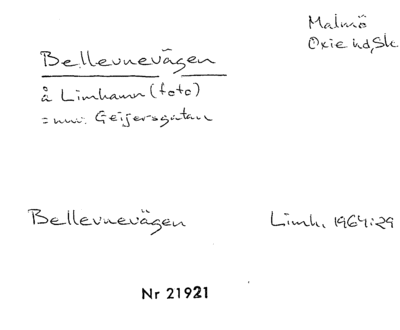 Malmö
Oxie hd, Sk.
Bellevuevägen
å Limhamn (foto)
= nuv. Geijersgatan
Bellevuevägen Limh. 1964:29
Nr 21921